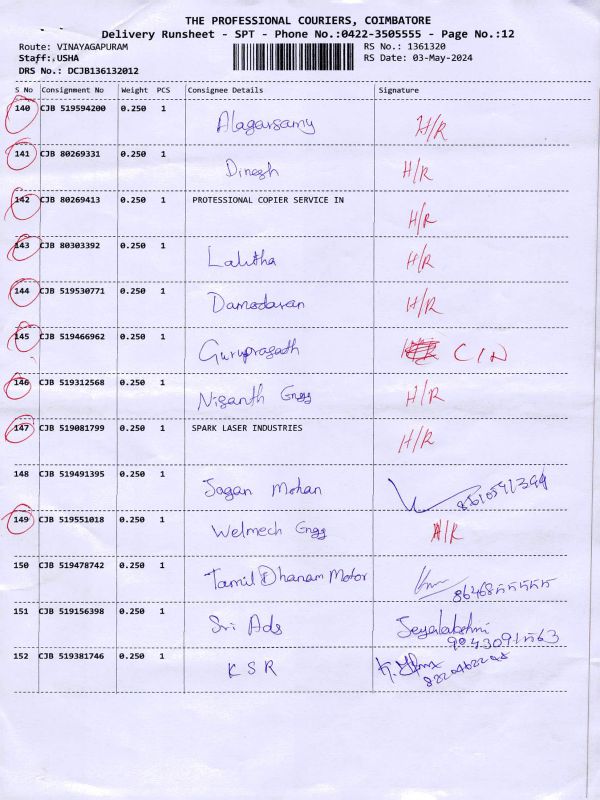 THE PROFESSIONAL COURIERS, COIMBATORE
Delivery Runsheet - SPT - Phone No.:0422-3505555 - Page No.:12
Route: VINAYAGAPURAM RS No.: 1361320
Staff: USHA RS Date: 03-May-2024
DRS No.: DCJB136132012
S No Consignment No Weight PCS Consignee Details Signature
140 CJB 519594200 0.250 1 Alagarsamy H/R
141 CJB 80269331 0.250 1 Dinesh H/R
142 CJB 80269413 0.250 1 PROFESSIONAL COPIER SERVICE IN H/R
143 CJB 80303392 0.250 1 Lalitha H/R
144 CJB 519530771 0.250 1 Damodaran H/R
145 CJB 519466962 0.250 1 Guruprasath C/N
146 CJB 519312568 0.250 1 Nisanth Engg H/R
147 CJB 519081799 0.250 1 SPARK LASER INDUSTRIES H/R
148 CJB 519491395 0.250 1 Jagan Mohan
149 CJB 519551018 0.250 1 Welmech Engg H/R
150 CJB 519478742 0.250 1 Tamil Dhanam Motor
151 CJB 519156398 0.250 1 Sri Ads Jeyalakshmi
152 CJB 519381746 0.250 1 KSR